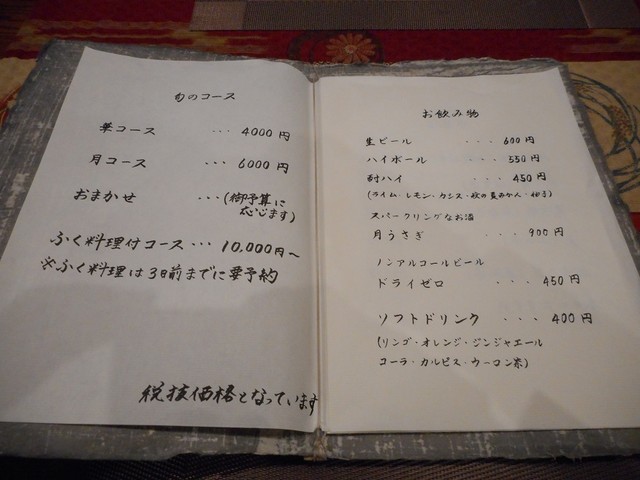 旬のコース
華コース ・・・ 4000円
月コース ・・・ 6000円
おまかせ ・・・(御予算に
応じます)
ふく料理付コース・・・10,000円〜
※ふく料理は3日前までに要予約
税抜価格となっています
お飲み物
生ビール ・・・ 600円
ハイボール ・・・ 550円
酎ハイ ・・・ 450円
(ライム・レモン・カシス・萩の夏みかん・柚子)
スパークリングなお酒
月うさぎ ・・・ 900円
ノンアルコールビール
ドライゼロ ・・・ 450円
ソフトドリンク ・・・ 400円
(リンゴ・オレンジ・ジンジャエール
コーラ・カルピス・ウーロン茶)